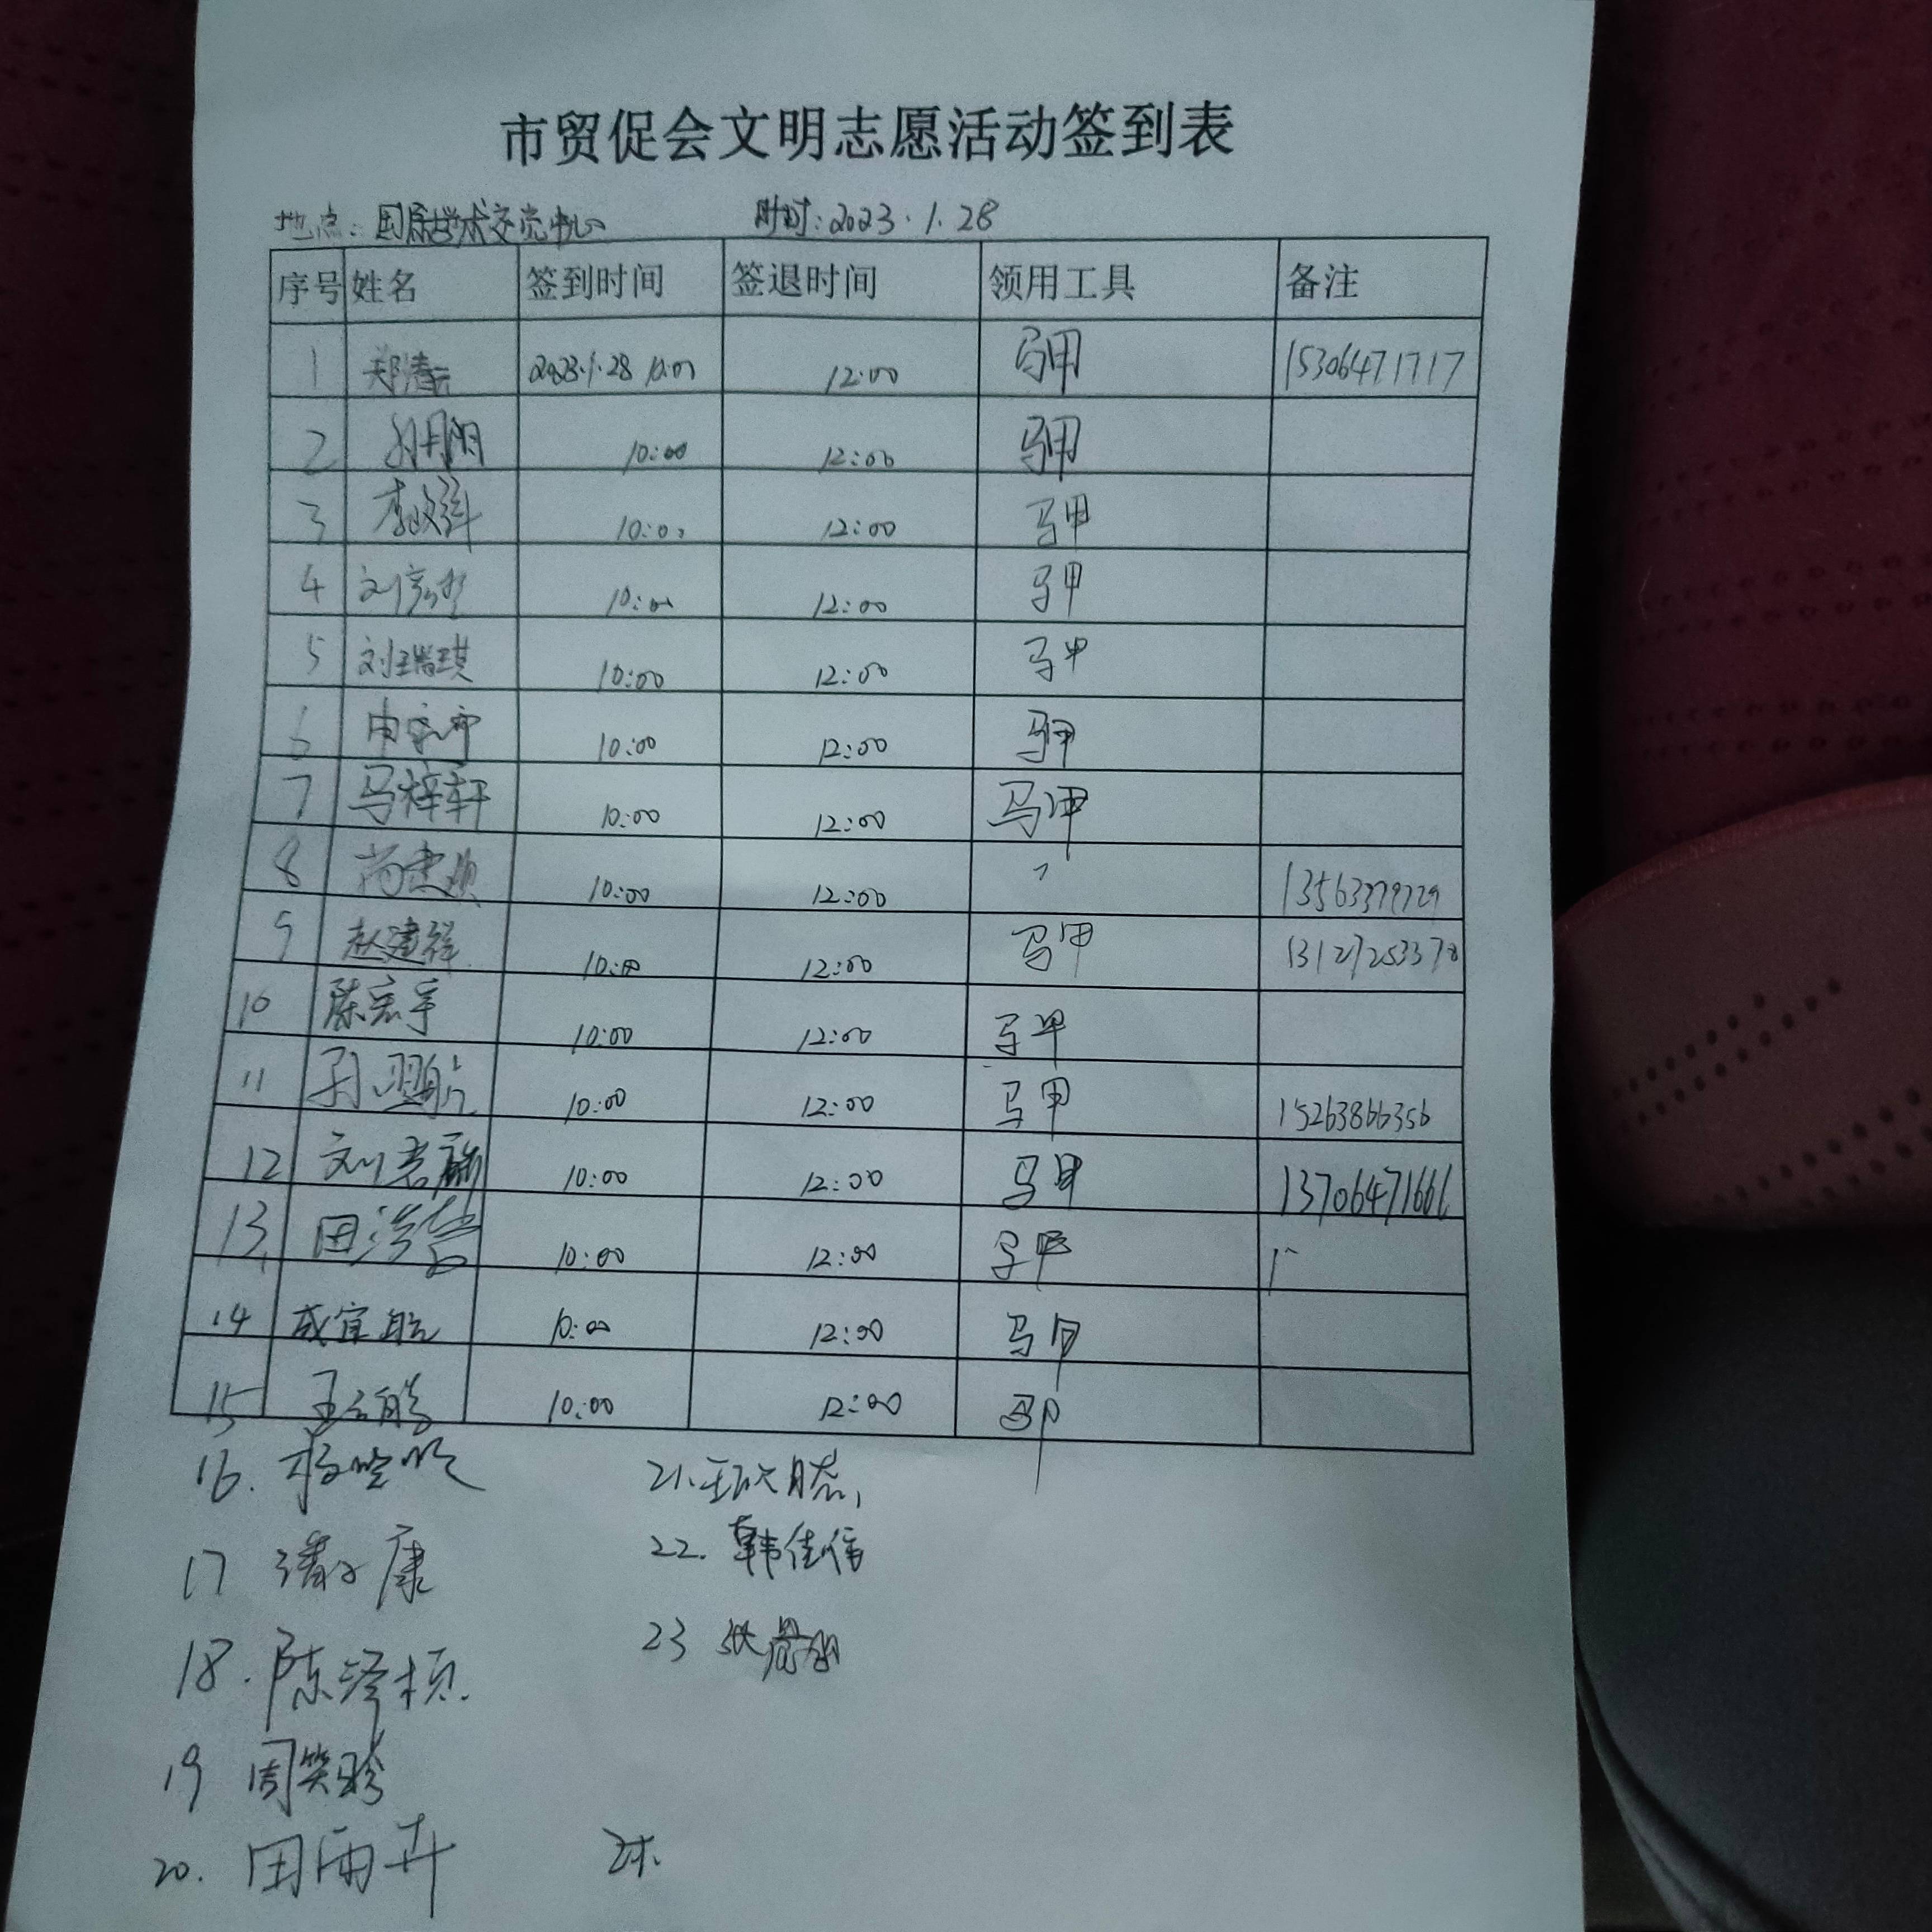 市贸促会文明志愿活动签到表
地点：国际学术交流中心 时间:2023.1.28
序号 姓名 签到时间 签退时间 领用工具 备注
1 郑清云 2023.1.28 10:00 12:00 马甲 15306471717
2 10:00 12:00 马甲
3 10:00 12:00 马甲
4 10:00 12:00 马甲
5 刘瑞琪 10:00 12:00 马甲
6 10:00 12:00 马甲
7 马梓轩 10:00 12:00 马甲
8 10:00 12:00 13563379729
9 赵建祥 10:00 12:00 马甲 13127253378
10 陈宏宇 10:00 12:00 马甲
11 孙翌航 10:00 12:00 马甲 15263866356
12 10:00 12:00 马甲 13706471666
13 田浩 10:00 12:00 马甲
14 成宜航 10:00 12:00 马甲
15 10:00 12:00 马甲
16.
17 潘子康
18. 陈泽桢
19 周笑珍
20. 田雨卉
21.
22. 韩佳信
23 张